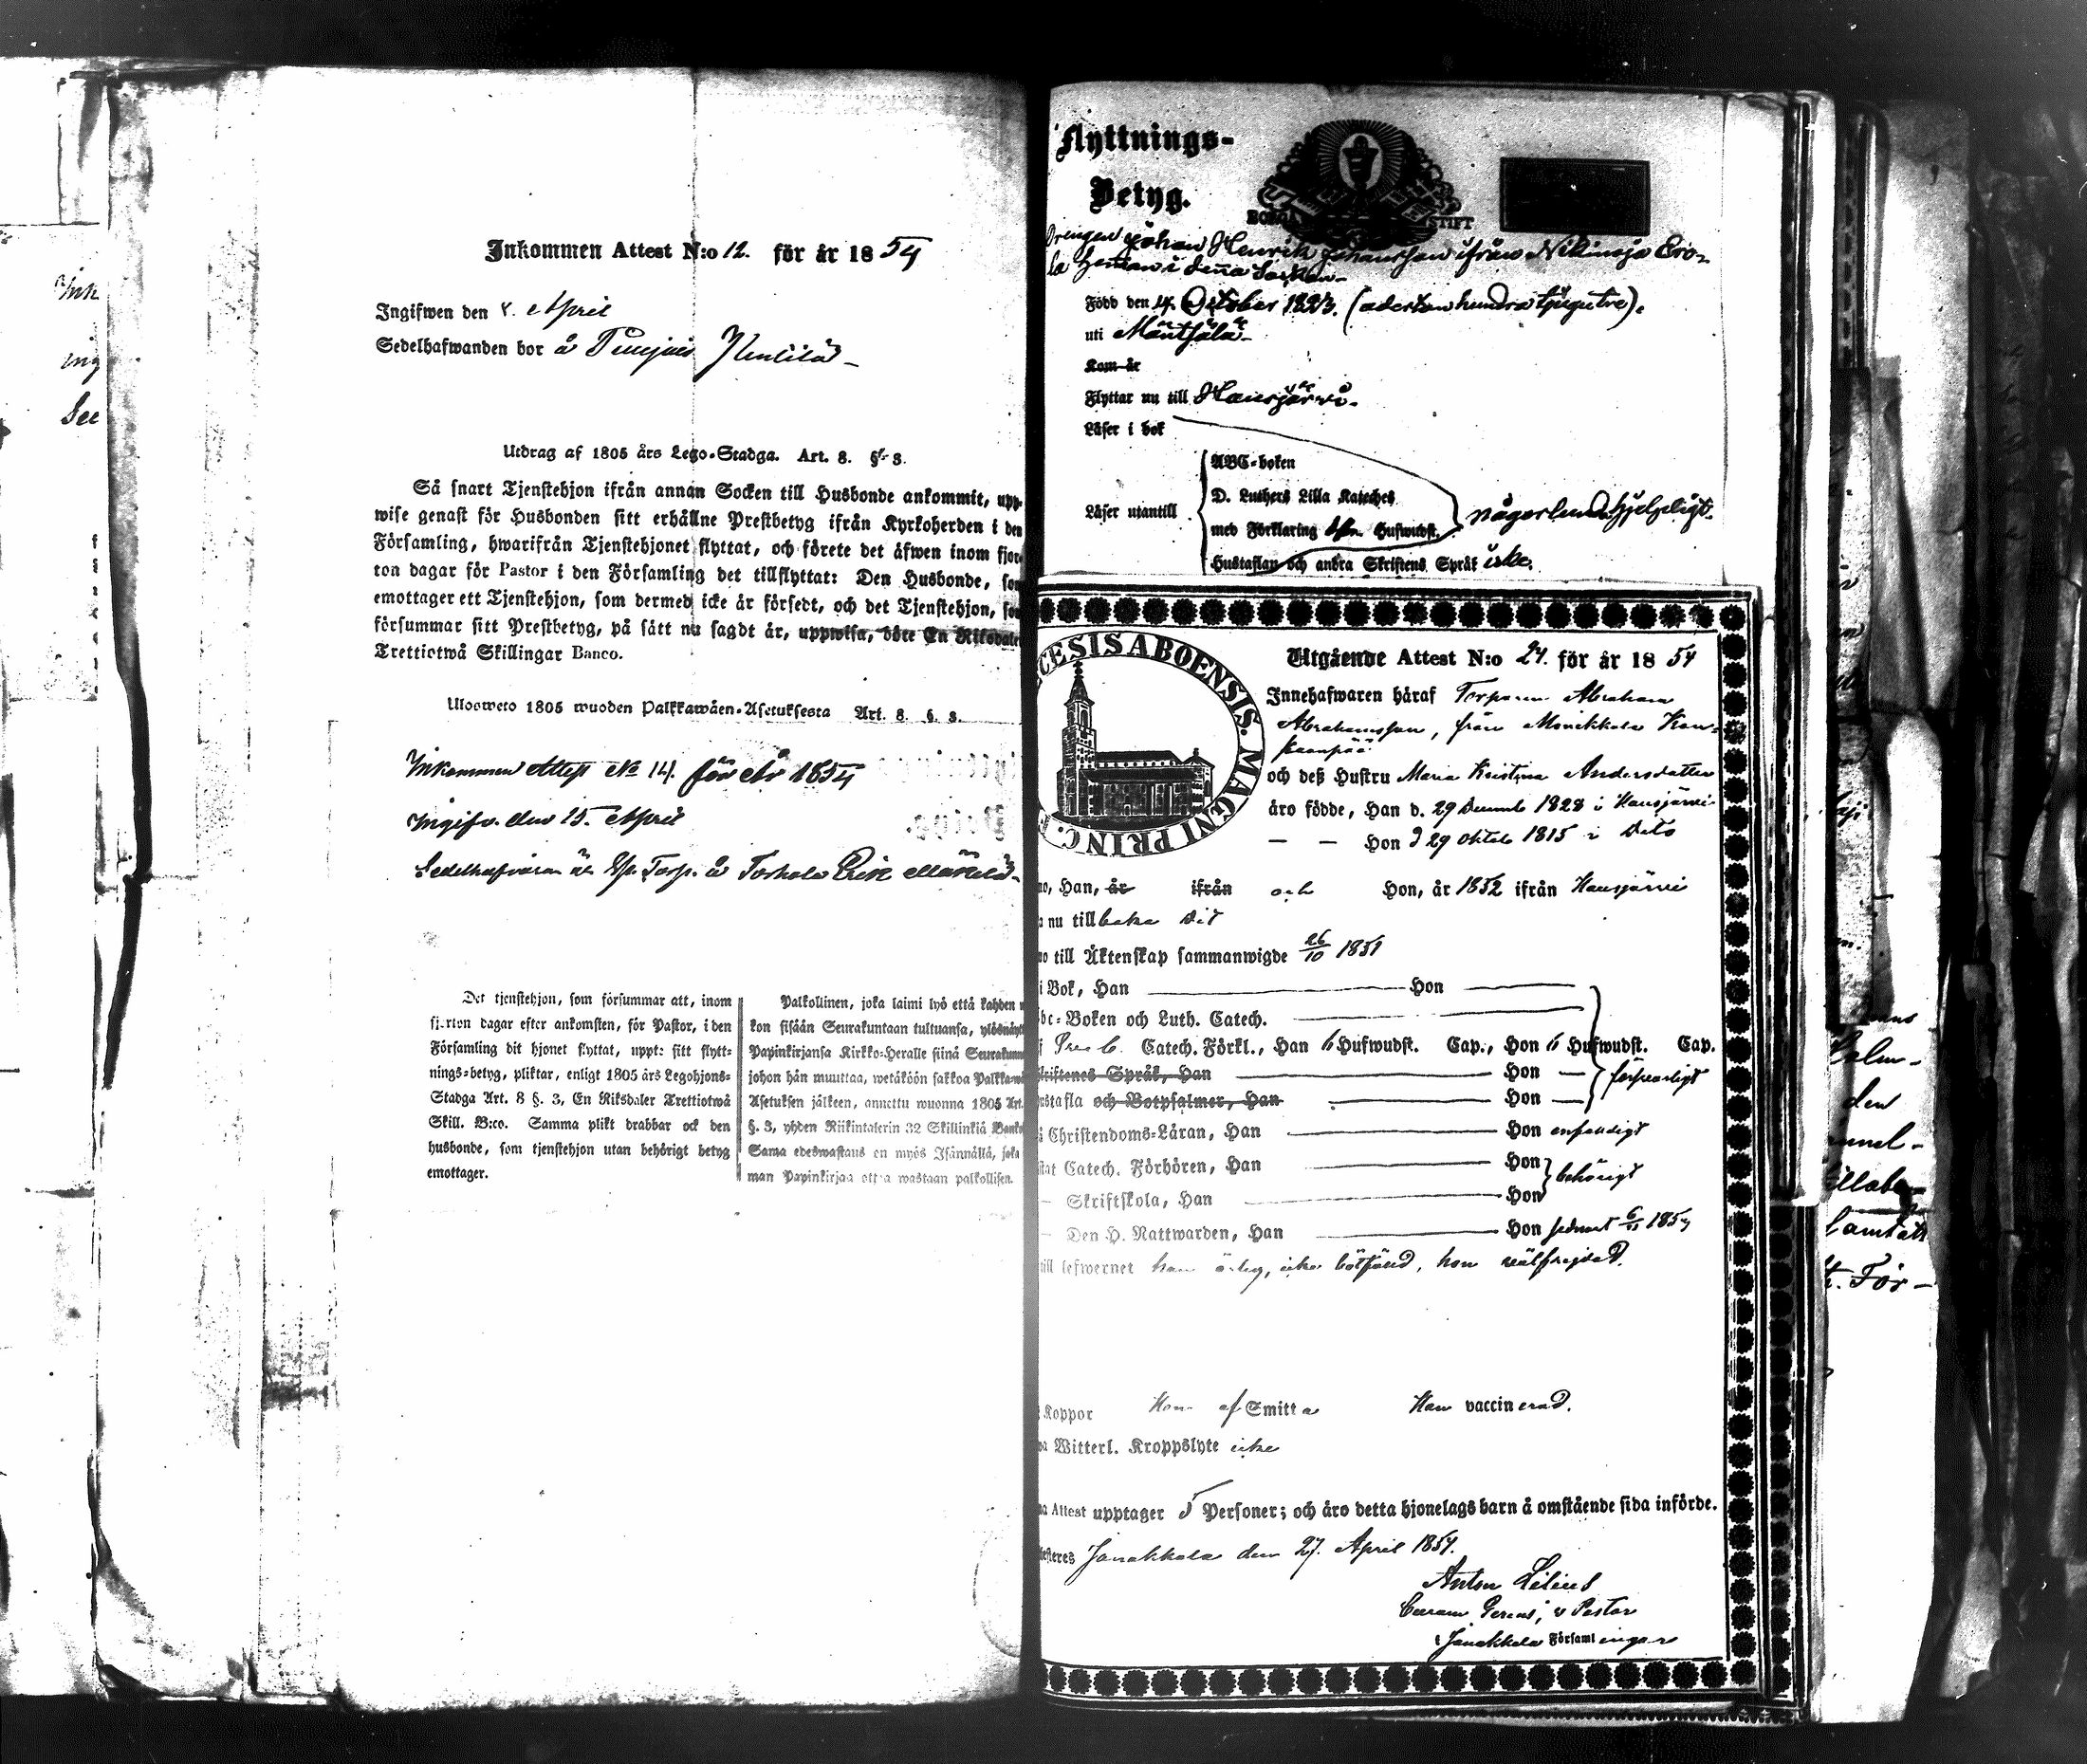 Inkommen Attest N:o 12. för år 1854
Ingifwen den 8. April
Sedelhafwanden bor å
Utdrag af 1805 års Lego-Stadga. Art. 8. § 3.
Så snart Tjenstehjon ifrån annan Socken till Husbonde ankommit, upp-
wise genast för Husbonden sitt erhållne Prestbetyg ifrån Kyrkoherden i den
Församling, hwarifrån Tjenstehjonet flyttat, och förete det äfwen inom fjor-
ton dagar för Pastor i den Församling det tillflyttat: Den Husbonde, som
emottager ett Tjenstehjon, som dermed icke är försedt, och det Tjenstehjon, som
försummar sitt Prestbetyg, på sätt nu sagdt är, uppwisa, böte En Riksdaler
Trettiotwå Skillingar Banco.
Ulosweto 1805 wuoden Palkkawäen-Asetuksesta Art. 8. §. 3.
Inkommen Attest No 14. för År 1854
Ingifv. den 15. April
Sedelhafvaren är Torp. å Torhola Erik Mäkelä
Det tjenstehjon, som försummar att, inom
fjorton dagar efter ankomsten, för Pastor, i den
Församling dit hjonet flyttat, uppt: sitt flytt-
nings-betyg, pliktar, enligt 1805 års Legohjons-
Stadga Art. 8 §. 3, En Riksdaler Trettiotwå
Skill. B:co. Samma plikt drabbar ock den
husbonde, som tjenstehjon utan behörigt betyg
emottager.
Palkollinen, joka laimi lyö että kahden
kon sisään Seurakuntaan tultuansa, ylösnäyt
Papinkirjansa Kirkko-Heralle siinä Seurakunn
johon hän muuttaa, wetäköön sakkoa Palkkaw
Asetuksen jälkeen, annettu wuonna 1805 Art.
§. 3, yhden Riikintalerin 32 Skillinkiä Banko
Sama edeswastaus on myös Isännällä, joka
man Papinkirjaa ottaa wastaan palkollisen.
Flyttnings-
Betyg.
BORGÅ STIFT
Drengen Johan Henrik Johansson ifrån Nikinoja Ero-
la Heman i denna Socken
Född den 14. October 1823. (adertonhundra tjugutre).
uti Mäntsälä
Kom år
Flyttar nu till Hausjärvi.
Läser i bok
ABC-boken
D. Luthers Lilla Kateches
Läser utantill
med Förklaring Hufwudst.
någorlunda hjelpeligt.
Hustaflan och andra Skriftens Språk icke.
CESIS ABOENSIS. MAGNI PRINC.
Utgående Attest N:o 24. för år 1854
Innehafwaren häraf Torparen Abraham
Abrahamsson, från Monikkala Kan-
kaanpää
och deß Hustru Maria Kristina Andersdotter
äro födde, Han d. 29 December 1828 i Hausjärvi
— — Hon d 29 Oktob 1815 i Dito
Han, år ifrån och Hon, år 1852 ifrån Hausjärvi
nu tillbaka dit
till Äktenskap sammanwigde 26/10 1851
i Bok, Han — Hon —
bc-Boken och Luth. Catech.
Catech. Förkl., Han 6 Hufwudst. Cap., Hon 6 Hufwudst. Cap.
Skriftenes Språk, Han — Hon — försvarligt
stafla och Botpsalmer, Han — Hon —
Christendoms-Läran, Han — Hon enfaldigt
Catech. Förhören, Han — Hon
behörigt
— Skriftskola, Han — Hon
— Den H. Nattwarden, Han — Hon sednast 1854
till lefwernet han ärlig, icke bötfäld, hon välfrejdad.
Koppor Hon af Smitta Han vaccinerad.
Witterl. Kroppslyte icke
Attest upptager 5 Personer; och äro detta hjonelags barn å omstående sida införde.
Janakkala den 27. April 1854.
Anton Lilius
v Pastor
i Janakkala Församlingar